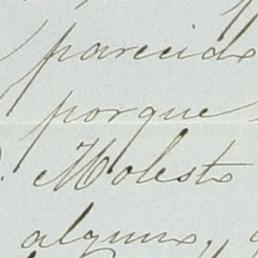 parecido
porque
Molesto
algunos,